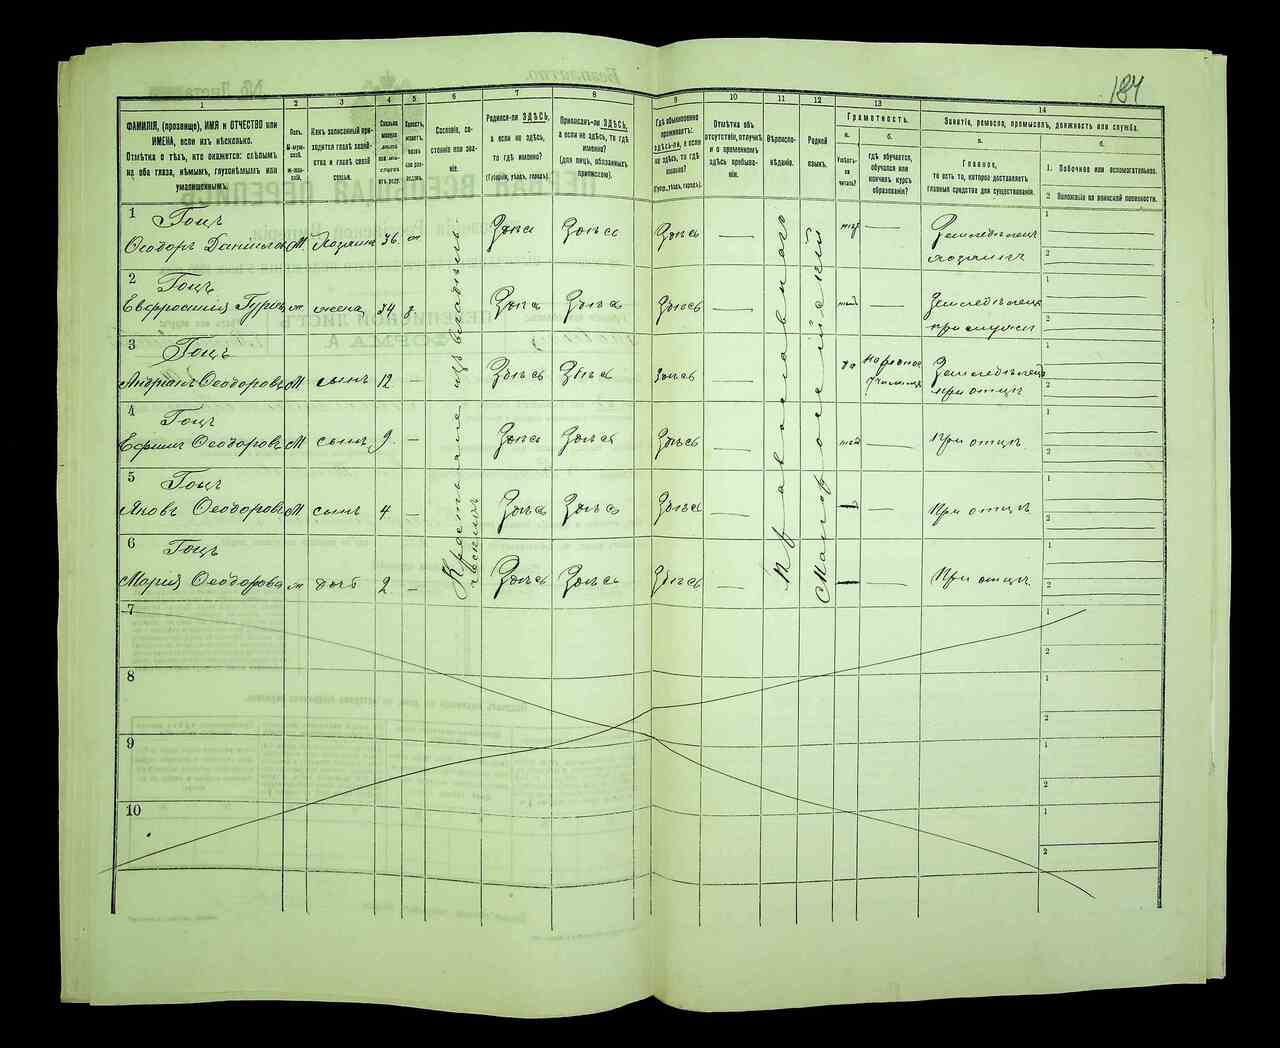 184
1
2
3
4
5
6
7
8
9
10
11
12
13
14
ФАМИЛІЯ, (прозвище), ИМЯ и ОТЧЕСТВО или
ИМЕНА, если ихъ нѣсколько.
Отмѣтка о тѣхъ, кто окажется: слѣпымъ
на оба глаза, нѣмымъ, глухонѣмымъ или
умалишеннымъ.
Полъ.
М-мужской.
Ж-женскій.
Какъ записанный приходится главѣ хозяйства и главѣ своей семьи.
Сколько минуло
Сословіе, состояніе или званіе.
Родился-ли ЗДѢСЬ,
а если не здѣсь,
то гдѣ именно?
(Губернія, уѣздъ, городъ).
Приписанъ-ли ЗДѢСЬ,
а если не здѣсь, то гдѣ
именно?
(для лицъ, обязанныхъ
припискою).
Гдѣ обыкновенно
проживаетъ:
здѣсь-ли, а если
не здѣсь, то гдѣ
именно?
(Губерн., уѣздъ, городъ).
Отмѣтка объ
отсутствіи, отлучкѣ
и о временномъ
здѣсь пребываніи.
Вѣроисповѣданіе.
Родной
языкъ.
Грамотность.
а.
Умѣетъ-ли
читать?
б.
гдѣ обучается,
обучался или
кончилъ курсъ
образованія?
Занятіе, ремесло, промыселъ, должность или служба.
а.
Главное,
то есть то, которое доставляетъ
главныя средства для существованія.
б.
1. Побочное или вспомогательное.
2 Положеніе по воинской повинности.
1
Гоцъ
Ѳеодоръ
М.
Хозяинъ
36
Здѣсь
Здѣсь
Здѣсь
нѣтъ
Земледѣлецъ
хозяинъ
1
2
2
Гоцъ
Евфросинія
ж
жена
34
Здѣсь
Здѣсь
Здѣсь
нѣтъ
1
2
3
Гоцъ
Ѳеодоровъ
М
сынъ
12
Здѣсь
Здѣсь
Здѣсь
да
народное
при отцѣ
1
2
4
Гоцъ
Ефимъ Ѳеодоровъ
М
сынъ
9
Здѣсь
Здѣсь
Здѣсь
нѣтъ
При отцѣ
1
2
5
Гоцъ
Яковъ Ѳеодоровъ
М
сынъ
4
Здѣсь
Здѣсь
Здѣсь
При отцѣ
1
2
6
Гоцъ
Марія Ѳеодорова
ж
дочь
2
Здѣсь
Здѣсь
Здѣсь
При отцѣ
1
2
Крестьяне изъ
Православнаго
Малоросійскій
7
1
2
8
1
2
9
1
2
10
1
2